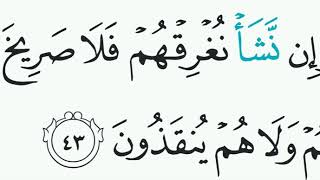 إِن نَّشَأۡ نُغۡرِقۡهُمۡ فَلَا صَرِيخَ
وَلَا هُمۡ يُنقَذُونَ ٤٣